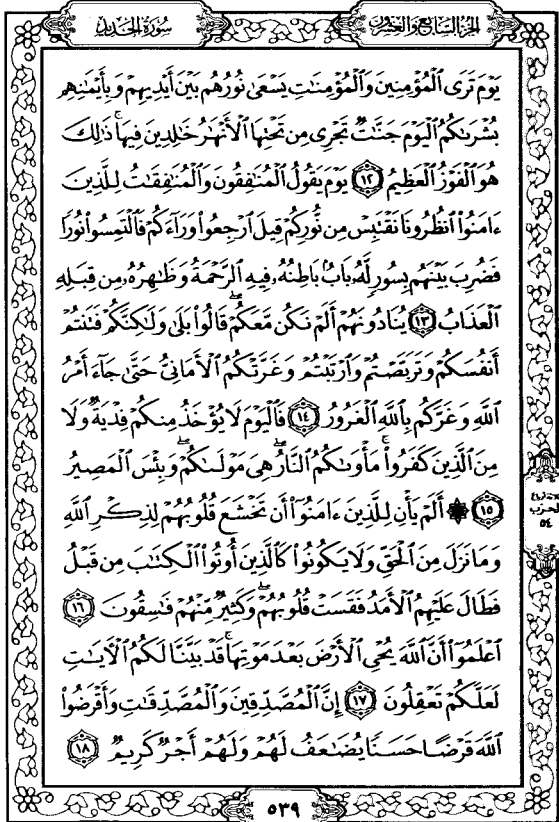 سُورَةُ الحَدِيدِ
الجُزْءُ السَّابِعُ وَالعِشْرُونَ
يَوْمَ تَرَى ٱلْمُؤْمِنِينَ وَٱلْمُؤْمِنَٰتِ يَسْعَىٰ نُورُهُم بَيْنَ أَيْدِيهِمْ وَبِأَيْمَٰنِهِم
بُشْرَىٰكُمُ ٱلْيَوْمَ جَنَّٰتٌ تَجْرِى مِن تَحْتِهَا ٱلْأَنْهَٰرُ خَٰلِدِينَ فِيهَا ۚ ذَٰلِكَ
هُوَ ٱلْفَوْزُ ٱلْعَظِيمُ ١٢ يَوْمَ يَقُولُ ٱلْمُنَٰفِقُونَ وَٱلْمُنَٰفِقَٰتُ لِلَّذِينَ
ءَامَنُوا۟ ٱنظُرُونَا نَقْتَبِسْ مِن نُّورِكُمْ قِيلَ ٱرْجِعُوا۟ وَرَآءَكُمْ فَٱلْتَمِسُوا۟ نُورًا
فَضُرِبَ بَيْنَهُم بِسُورٍ لَّهُۥ بَابٌۢ بَاطِنُهُۥ فِيهِ ٱلرَّحْمَةُ وَظَٰهِرُهُۥ مِن قِبَلِهِ
ٱلْعَذَابُ ١٣ يُنَادُونَهُمْ أَلَمْ نَكُن مَّعَكُمْ ۖ قَالُوا۟ بَلَىٰ وَلَٰكِنَّكُمْ فَتَنتُمْ
أَنفُسَكُمْ وَتَرَبَّصْتُمْ وَٱرْتَبْتُمْ وَغَرَّتْكُمُ ٱلْأَمَانِىُّ حَتَّىٰ جَآءَ أَمْرُ
ٱللَّهِ وَغَرَّكُم بِٱللَّهِ ٱلْغَرُورُ ١٤ فَٱلْيَوْمَ لَا يُؤْخَذُ مِنكُمْ فِدْيَةٌ وَلَا
مِنَ ٱلَّذِينَ كَفَرُوا۟ ۚ مَأْوَىٰكُمُ ٱلنَّارُ ۖ هِىَ مَوْلَىٰكُمْ ۖ وَبِئْسَ ٱلْمَصِيرُ
١٥ ۞ أَلَمْ يَأْنِ لِلَّذِينَ ءَامَنُوٓا۟ أَن تَخْشَعَ قُلُوبُهُمْ لِذِكْرِ ٱللَّهِ
وَمَا نَزَلَ مِنَ ٱلْحَقِّ وَلَا يَكُونُوا۟ كَٱلَّذِينَ أُوتُوا۟ ٱلْكِتَٰبَ مِن قَبْلُ
فَطَالَ عَلَيْهِمُ ٱلْأَمَدُ فَقَسَتْ قُلُوبُهُمْ ۖ وَكَثِيرٌ مِّنْهُمْ فَٰسِقُونَ ١٦
ٱعْلَمُوٓا۟ أَنَّ ٱللَّهَ يُحْىِ ٱلْأَرْضَ بَعْدَ مَوْتِهَا ۚ قَدْ بَيَّنَّا لَكُمُ ٱلْـَٔايَٰتِ
لَعَلَّكُمْ تَعْقِلُونَ ١٧ إِنَّ ٱلْمُصَّدِّقِينَ وَٱلْمُصَّدِّقَٰتِ وَأَقْرَضُوا۟
ٱللَّهَ قَرْضًا حَسَنًا يُضَٰعَفُ لَهُمْ وَلَهُمْ أَجْرٌ كَرِيمٌ ١٨
الحزب
٥٤
٥٣٩